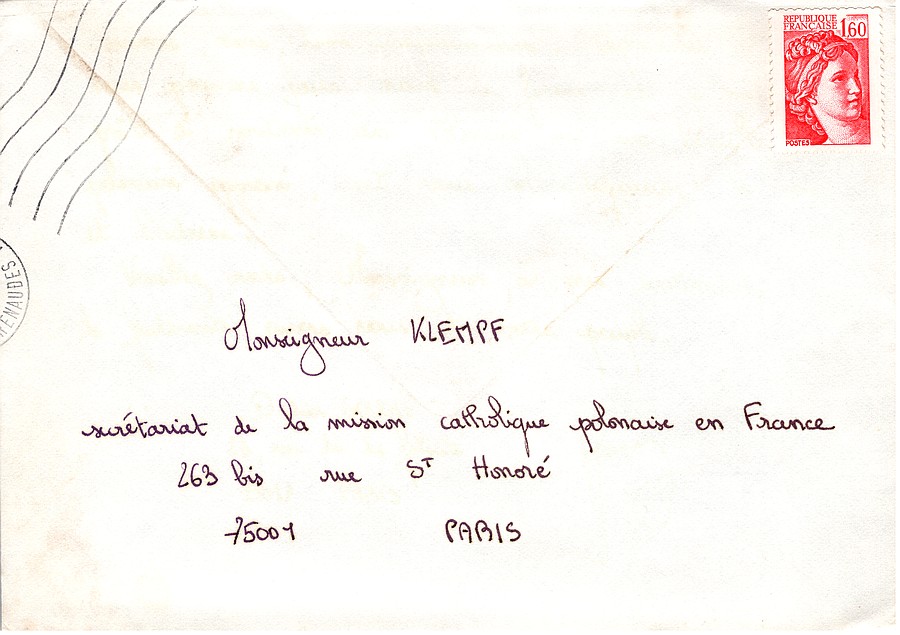 RÉPUBLIQUE
FRANÇAISE 1,60
POSTES
Monseigneur KLEMPF
secrétariat de la mission catholique polonaise en France
263 bis rue St Honoré
75001 PARIS